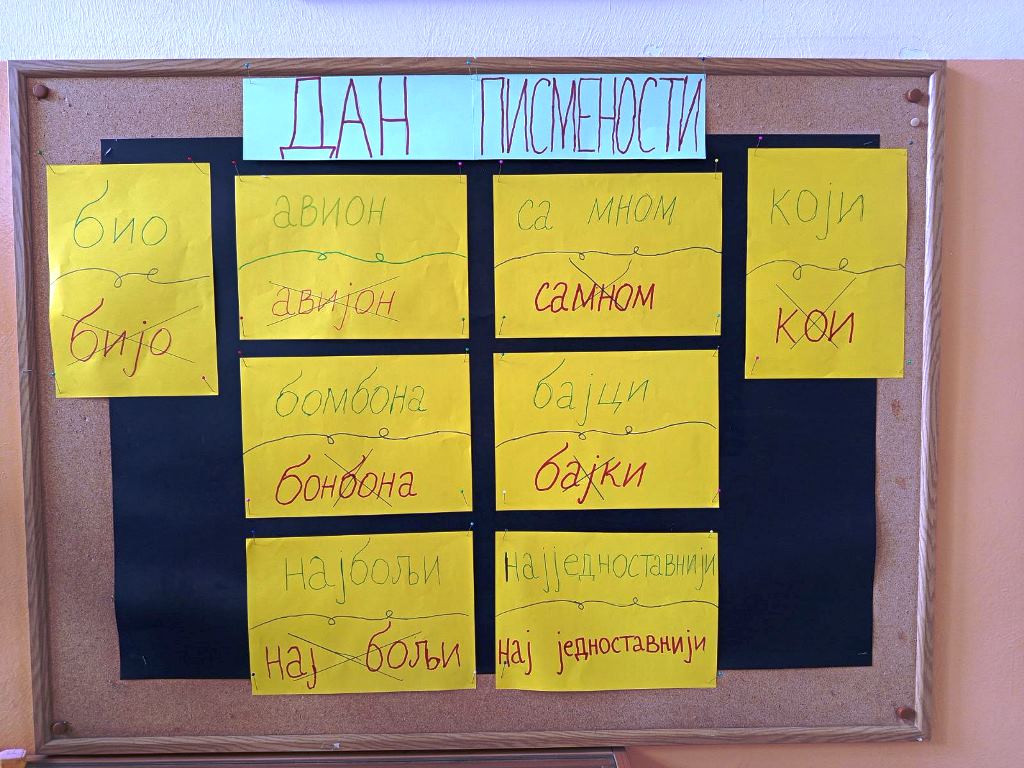 ДАН ПИСМЕНОСТИ
био
бијо
авион
авијон
са мном
самном
који
кои
бомбона
бонбона
бајци
бајки
најбољи
нај бољи
најједноставнији
нај једноставнији